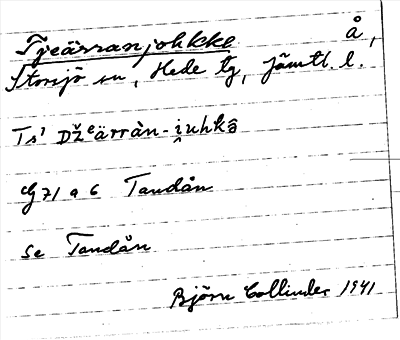 Tjeärranjohkke å,
Storsjö sn, Hede tg, Jämtl. l.
Ts¹ Džᵉärràn-i̯uhkə̑
G 71 a 6 Tandån
se Tandån
Björn Collinder 1941